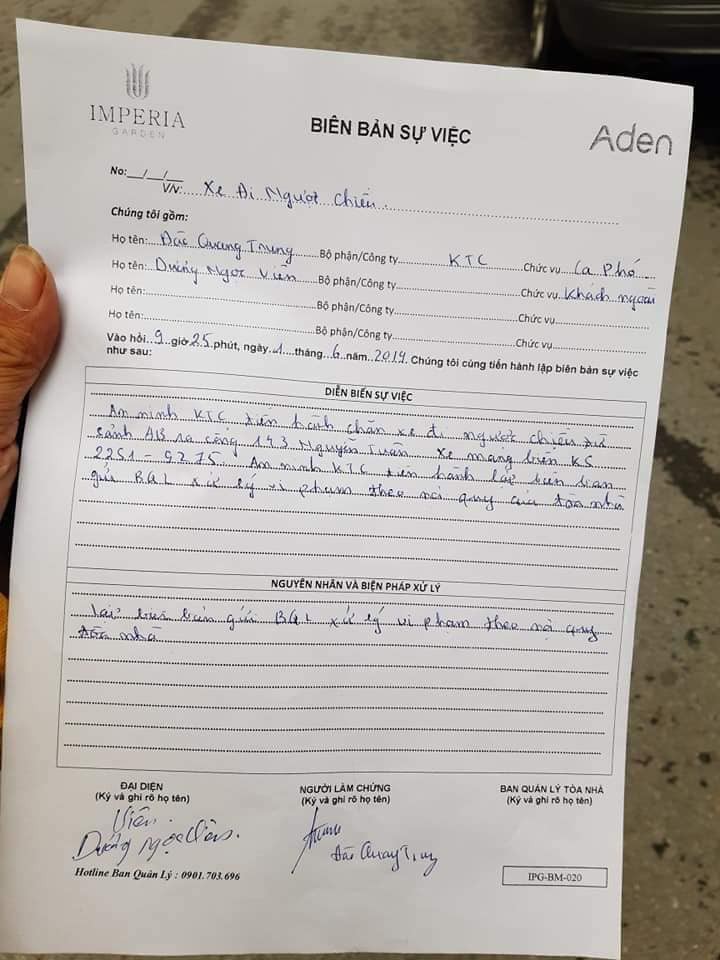 IMPERIA
GARDEN
BIÊN BẢN SỰ VIỆC
Aden
No:__/__/__
V/v: Xe Đi Ngược Chiều.
Chúng tôi gồm:
Họ tên: Đào Quang Trung Bộ phận/Công ty KTC Chức vụ Ca Phó
Họ tên: Dương Ngọc Viên Bộ phận/Công ty Chức vụ Khách ngoài
Họ tên: Bộ phận/Công ty Chức vụ
Họ tên: Bộ phận/Công ty Chức vụ
Vào hồi 9 giờ 25 phút, ngày 1 tháng 6 năm 2019. Chúng tôi cùng tiến hành lập biên bản sự việc
như sau:
DIỄN BIẾN SỰ VIỆC
An ninh KTC tiến hành chặn xe đi ngược chiều từ
sảnh AB ra cổng 143 Nguyễn Tuân. Xe mang biển KS
2251-9275. An ninh KTC tiến hành lập biên bản
gửi BQL xử lý vi phạm theo nội quy của tòa nhà
NGUYÊN NHÂN VÀ BIỆN PHÁP XỬ LÝ
lập biên bản gửi BQL xử lý vi phạm theo nội quy
tòa nhà
ĐẠI DIỆN NGƯỜI LÀM CHỨNG BAN QUẢN LÝ TÒA NHÀ
(Ký và ghi rõ họ tên) (Ký và ghi rõ họ tên) (Ký và ghi rõ họ tên)
Viên.
Dương Ngọc Viên.
Đào Quang Trung
Hotline Ban Quản Lý : 0901.703.696
IPG-BM-020